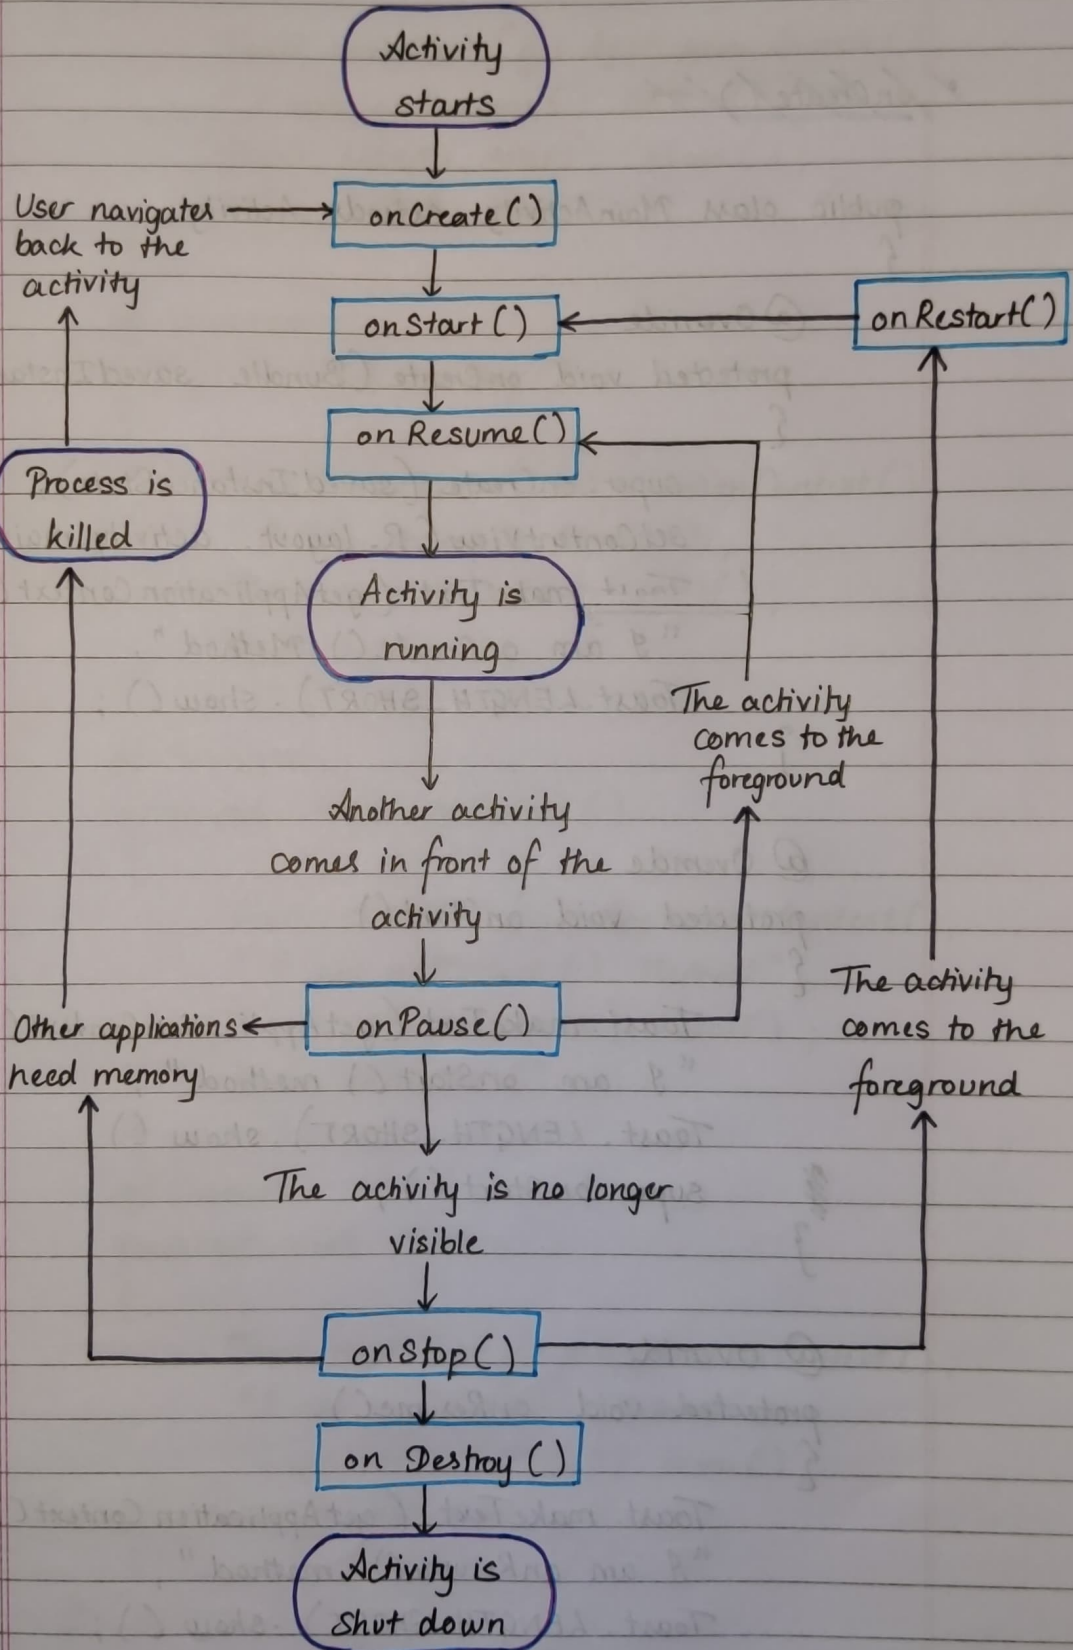 Activity
starts
User navigates
back to the
activity
onCreate()
onStart()
onRestart()
onResume()
Process is
killed
Activity is
running
The activity
comes to the
foreground
Another activity
comes in front of the
activity
onPause()
Other applications
need memory
The activity
comes to the
foreground
The activity is no longer
visible
onStop()
on Destroy()
Activity is
shut down